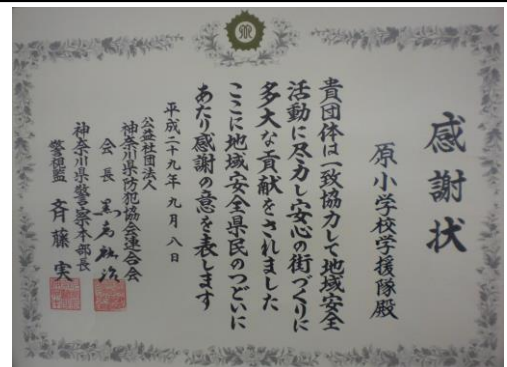 感謝状
原小学校学援隊殿
貴団体は一致協力して地域安全
活動に尽力し安心の街づくりに
多大な貢献をされました
ここに地域安全県民のつどいに
あたり感謝の意を表します
平成二十九年九月八日
公益社団法人
神奈川県防犯協会連合会
会長
神奈川県警察本部長
警視監 斉藤実